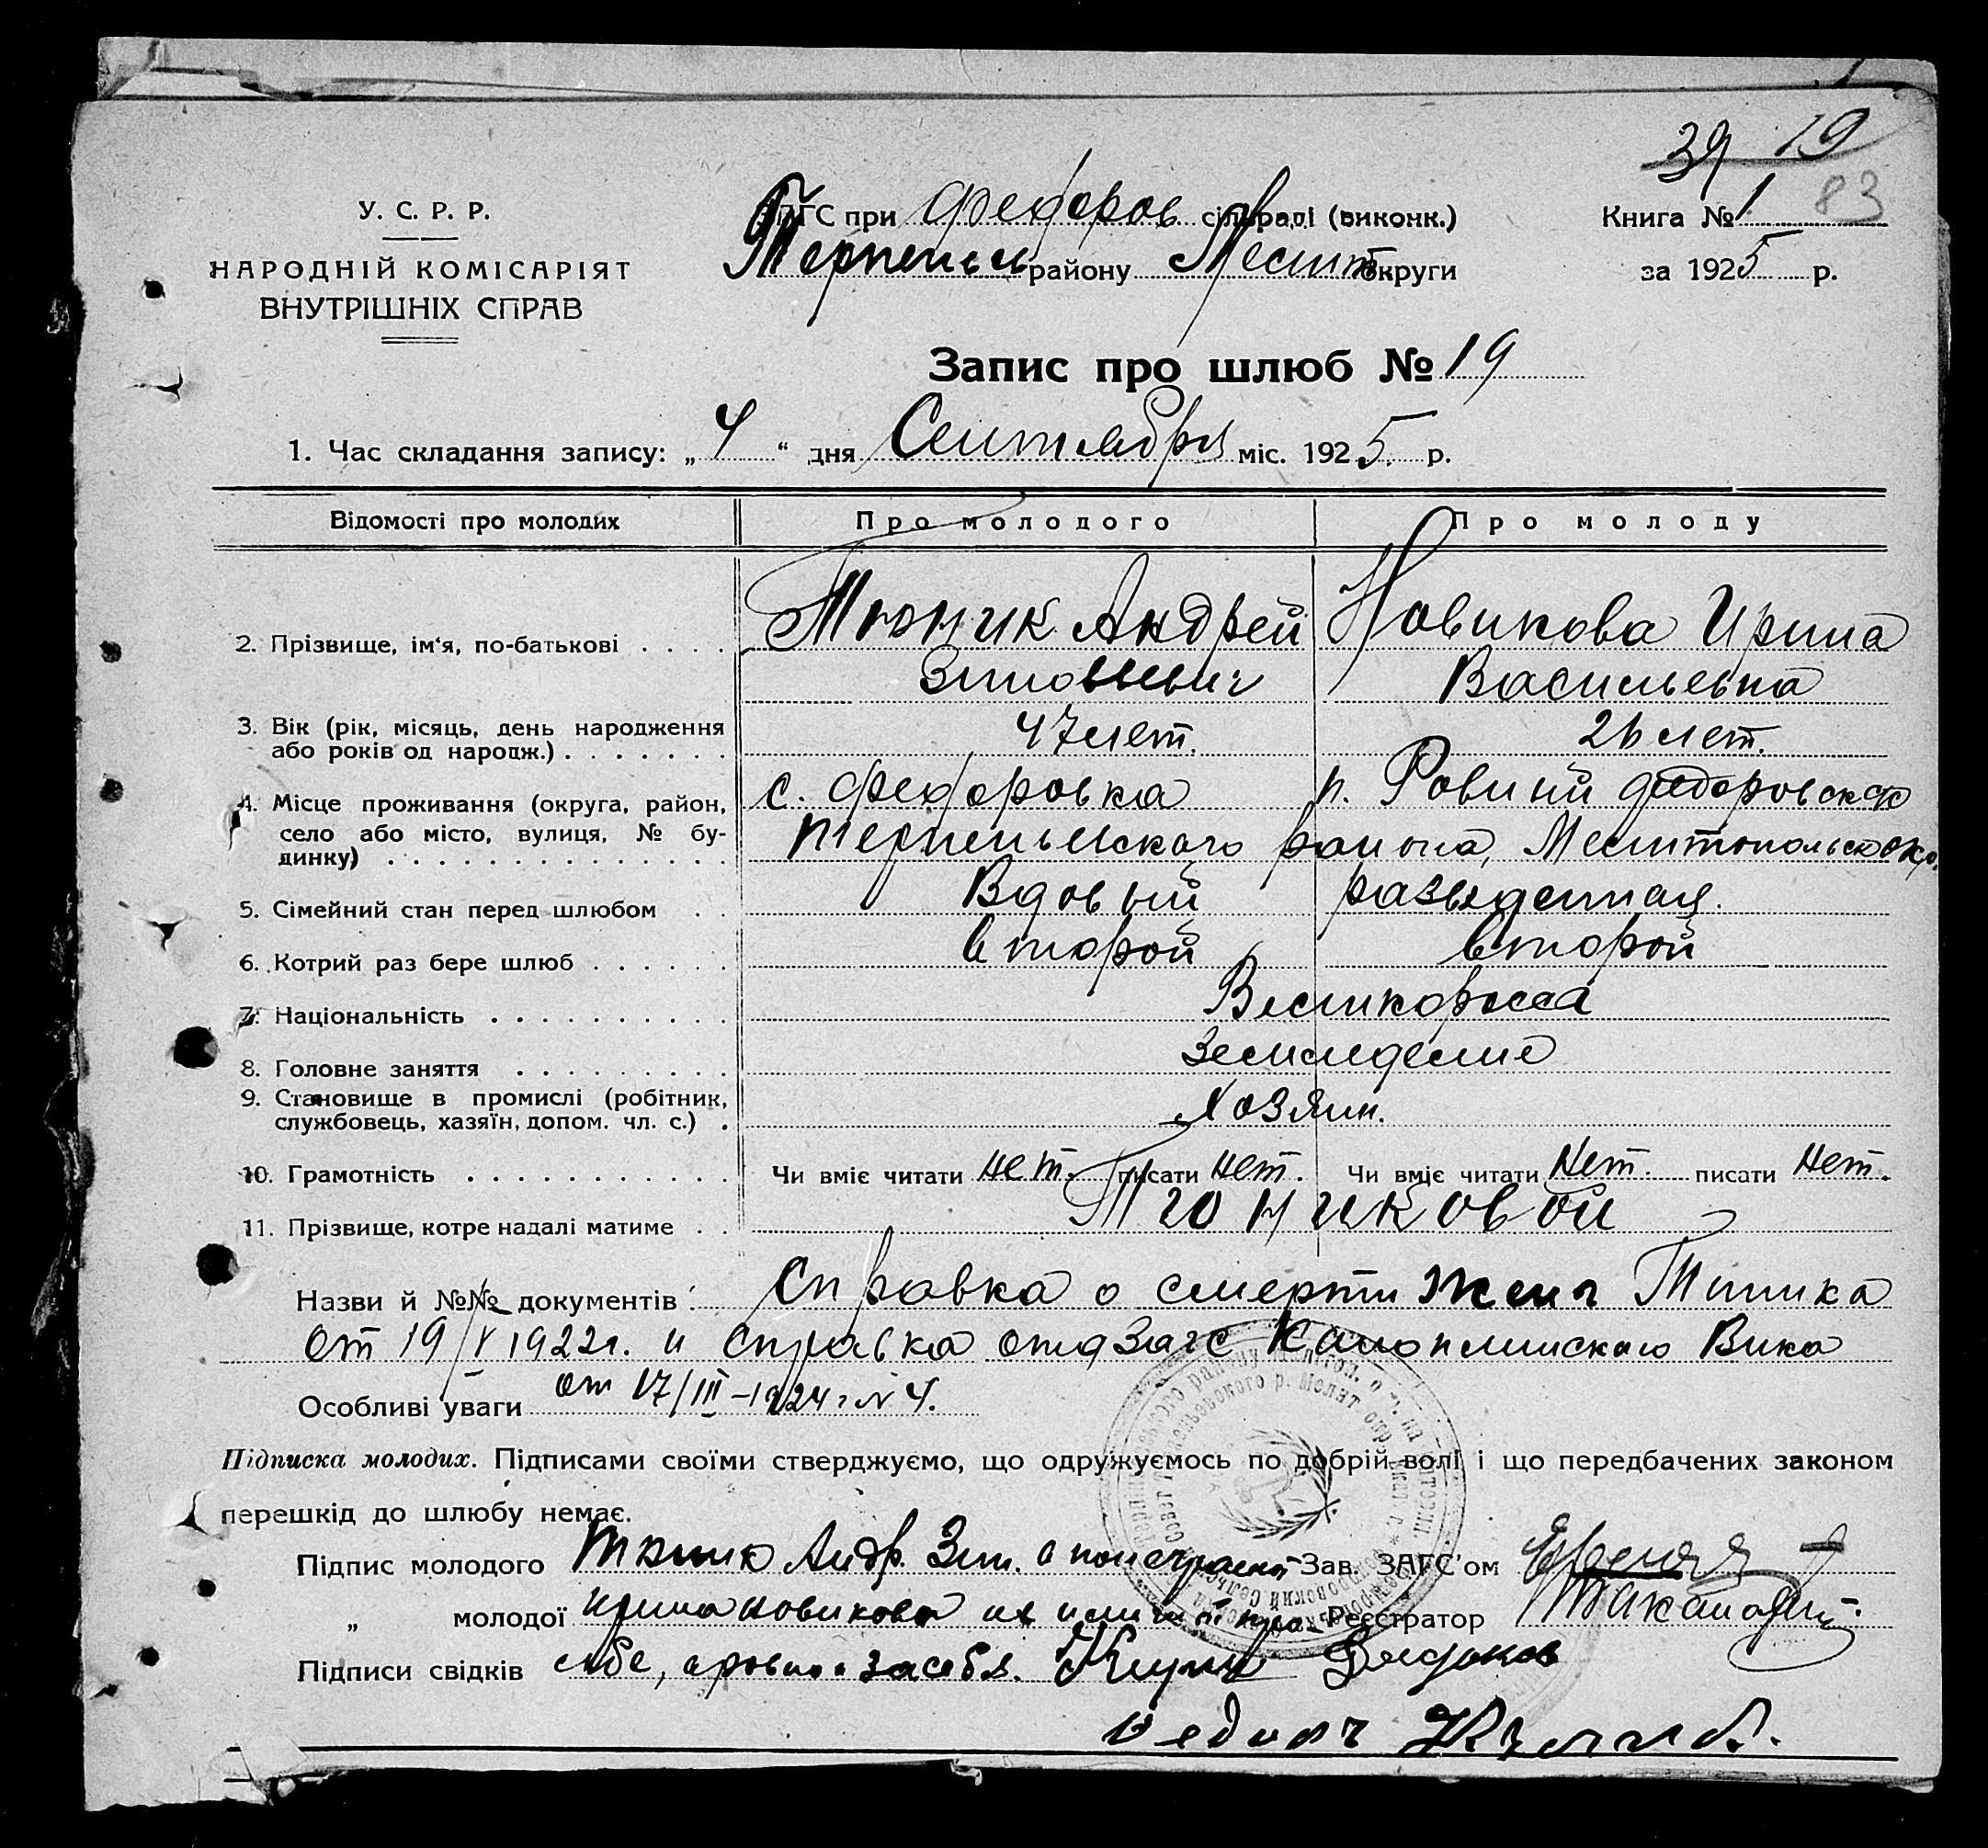 39 19
83
У. С. Р. Р.
НАРОДНІЙ КОМІСАРІЯТ
ВНУТРІШНІХ СПРАВ
при Федоров сільраді (виконк.)
Терпеньев району Мелит округи
Книга № 1
за 1925 р.
Запис про шлюб № 19
1. Час складання запису: „ 4 “ дня Сентября міс. 1925. р.
Відомості про молодих Про молодого Про молоду
2. Прізвище, ім‘я, по-батькові . . . . Тюник Андрей Новикова Ирина
Зиновьевич Васильевна
3. Вік (рік, місяць, день народження
або років од народж.) . . . . . . . 47 лет. 26 лет.
4. Місце проживання (округа, район, с. Федоровка п. Ровный Федоровск
село або місто, вулиця, № бу-
динку) . . . . . . . . . . . . . . Терпеньевского района, Мелитопольск окр.
5. Сімейний стан перед шлюбом . . Вдовый разведенная.
6. Котрий раз бере шлюб . . . . . . второй второй
7. Національність . . . . . . . . . . Великоросса
8. Головне заняття . . . . . . . . . Земледелие
9. Становище в промислі (робітник,
службовець, хазяїн, допом. чл. с.) . Хозяин.
10. Грамотність . . . . . . . . . . . Чи вміє читати нет. писати нет. Чи вміє читати Нет. писати Нет.
11. Прізвище, котре надалі матиме . . Тюниковой
Назви й №№ документів: Справка о смерти жены Тюника
от 19/V 1922г. и справка отд Загс Вика
Особливі уваги от 17/III–1924 г № 4.
Підписка молодих. Підписами своїми стверджуємо, що одружуємось по добрій волі і що передбачених законом
перешкід до шлюбу немає.
Підпис молодого Тюник Андр. Зин. Зав. ЗАГС’ом
„ молодої Ирина Новикова Реєстратор
Підписи свідків